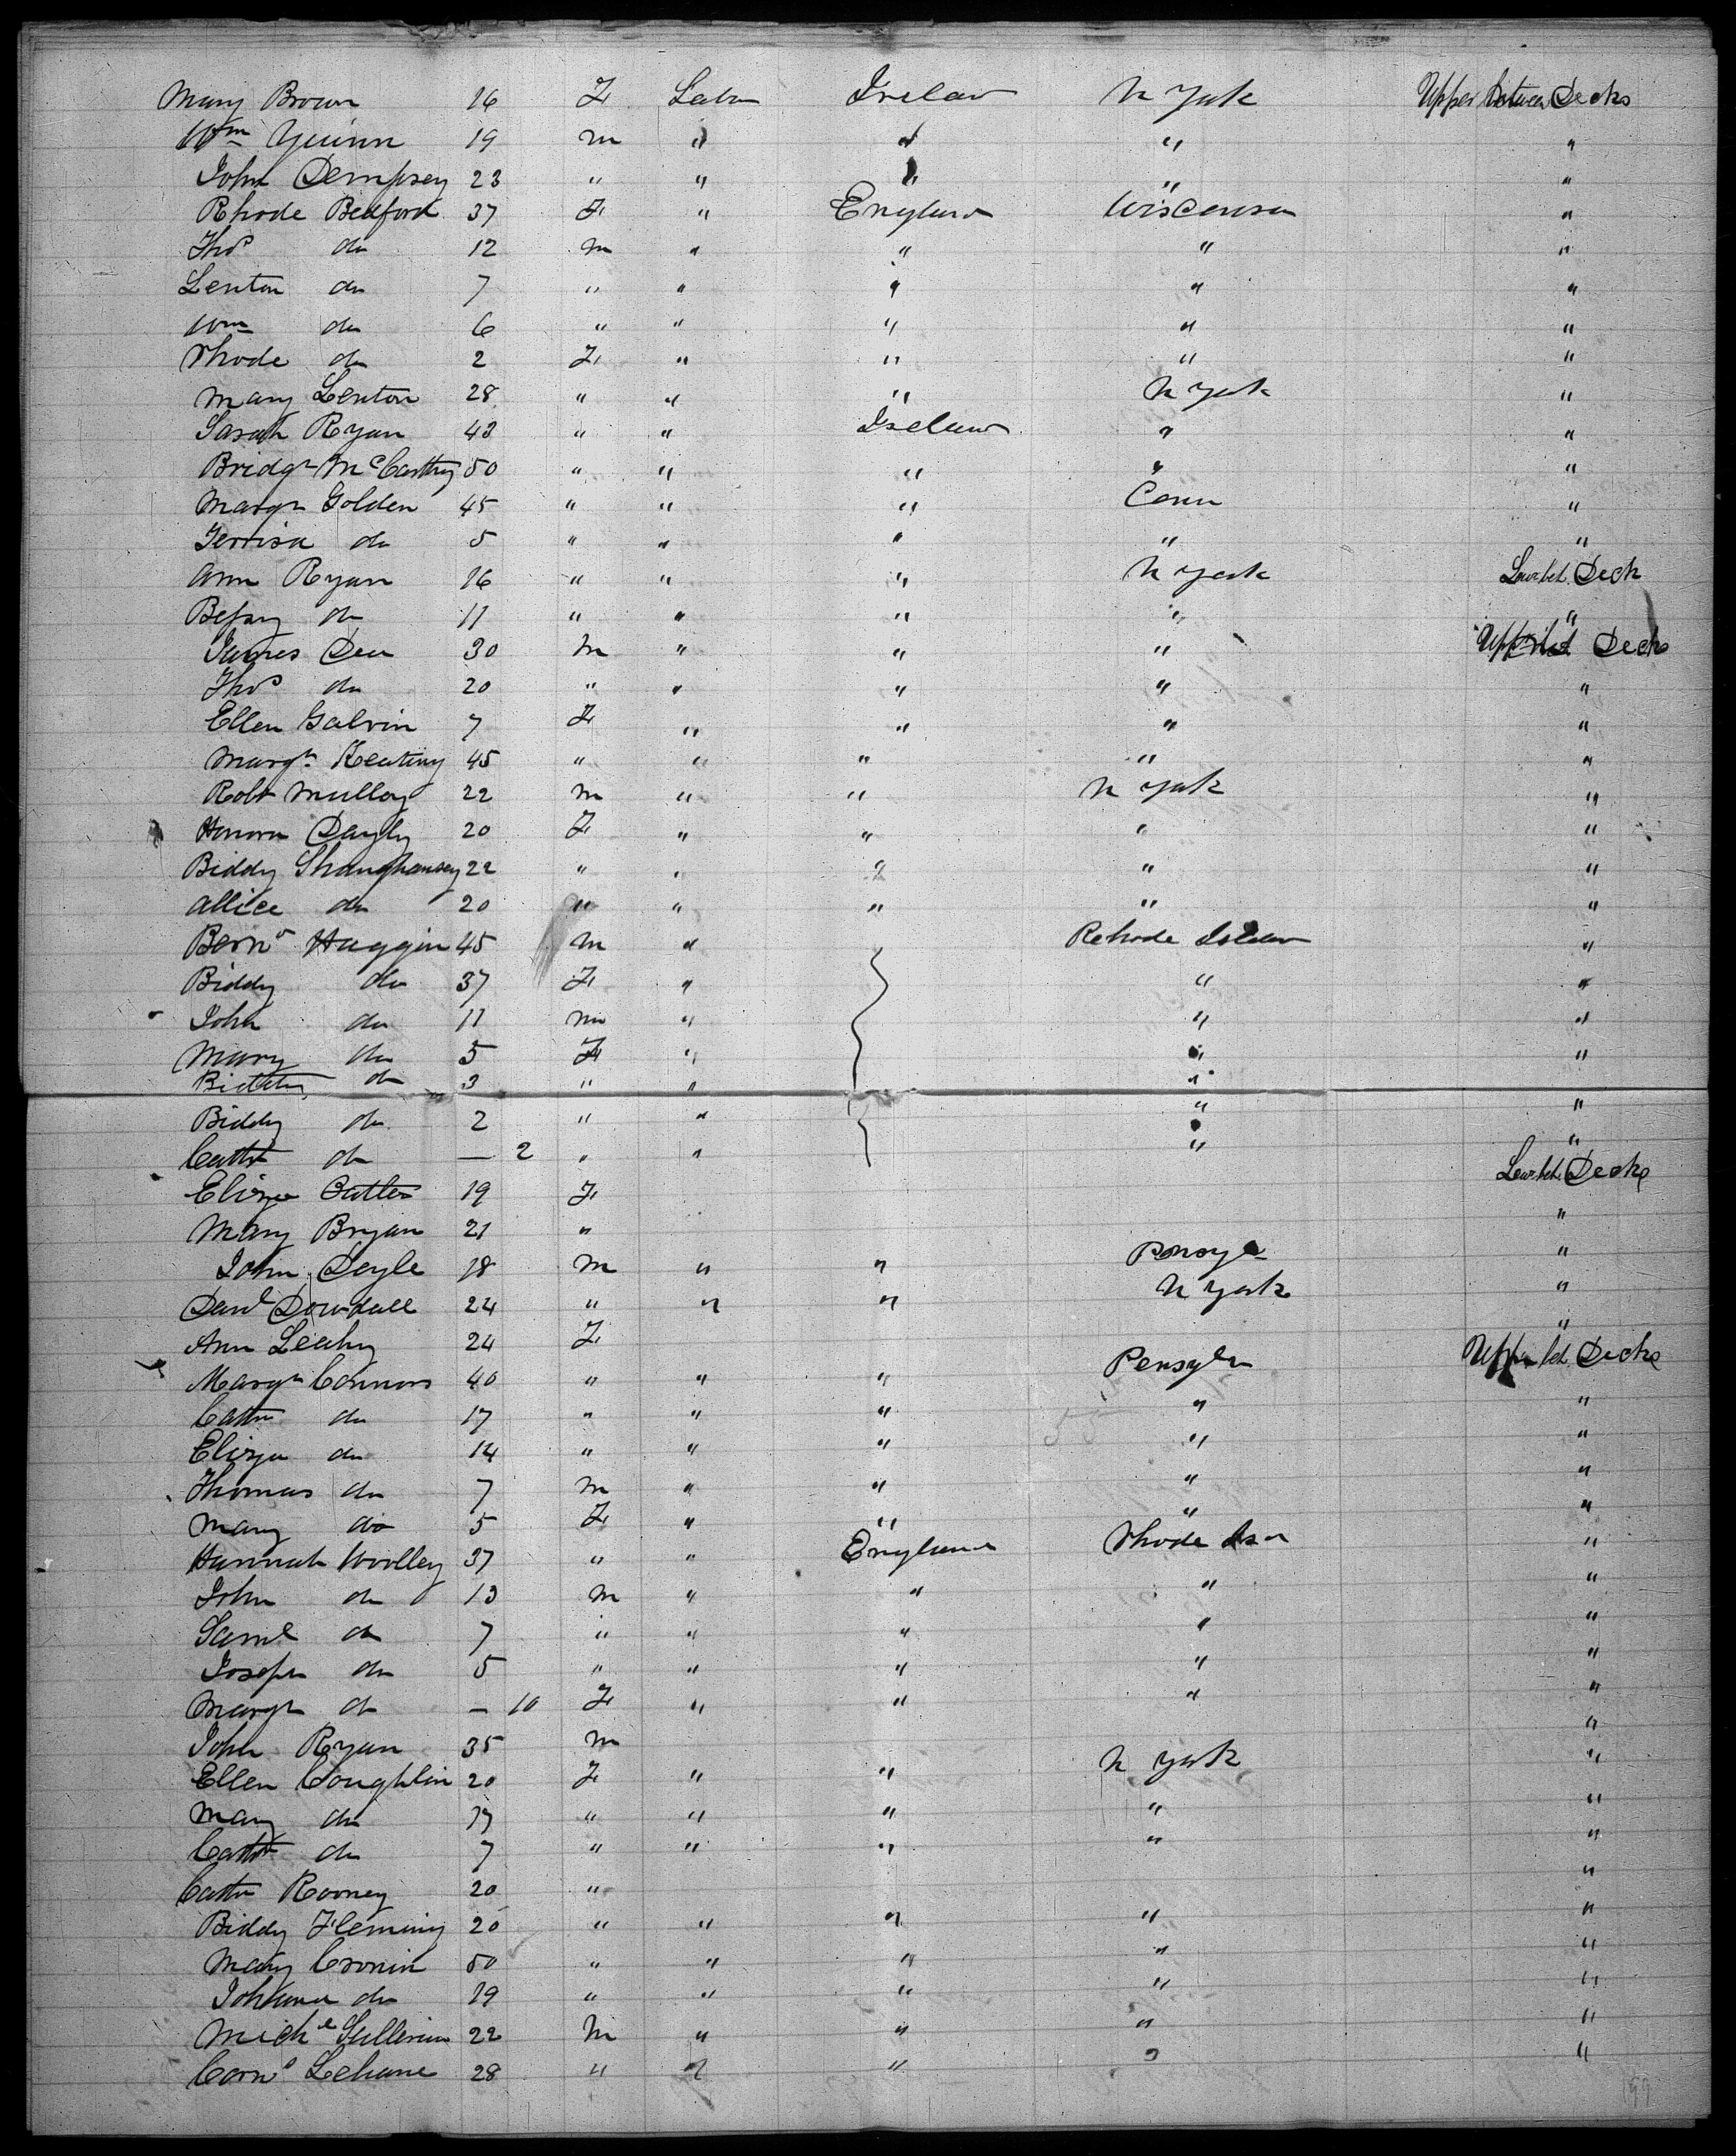 Mary Brown 16 F Labr Irelan N York Upper between Decks
Wm Quinn 19 m " " " "
John Dempsey 23 " " " " "
Rhode Bedford 37 F " England Wisconsin "
Thos do 12 m " " " "
Lenton do 7 " " " " "
Wm do 6 " " " " "
Rhode do 2 F " " " "
Mary Lenton 28 " " " N York "
Sarah Ryan 43 " " Ireland " "
Bridgt McCarthy 50 " " " " "
Margt Golden 45 " " " Conn "
Terrisa do 5 " " " " "
Ann Ryan 16 " " " N York Lowr bet. Deck
Bessy do 11 " " " " "
James Dea 30 m " " " Upper bet Decks
Thos do 20 " " " " "
Ellen Galvin 7 F " " " "
Margt Keating 45 " " " " "
Robt Mulloy 22 m " " N York "
Honora Dayly 20 F " " " "
Biddy Shaughansey 22 " " " " "
Allice do 20 " " " " "
Bernd Huggin 45 m " Rehode Islan "
Biddy do 37 F " " "
John do 11 m " " "
Mary do 5 F " " "
Biddy do 3 " " "
Biddy do 2 " " " "
Cathr do — 2 " " " "
Eliza Butler 19 F Lowr bet. Decks
Mary Bryan 21 " "
John Doyle 18 m " " Pensyla "
Danl Dowdall 24 " " " N York "
Ann Leahy 24 F "
Margt Connors 40 " " " Pensylva Upper bet. Decks
Cathr do 17 " " " " "
Eliza do 14 " " " " "
Thomas do 7 m " " " "
Mary do 5 F " " " "
Hannah Woolley 37 " " England Rhode Isn "
John do 13 m " " " "
Saml do 7 " " " " "
Joseph do 5 " " " " "
Margt do — 10 F " " " "
John Ryan 35 m "
Ellen Coughlin 20 F " " N York "
Mary do 17 " " " " "
Cathr do 7 " " " " "
Cathr Rooney 20 " "
Biddy Fleming 20 " " " " "
Mary Cronin 50 " " " " "
Johanna do 19 " " " " "
Michl Sullivan 22 m " " " "
Corns Lehane 28 " " " " "